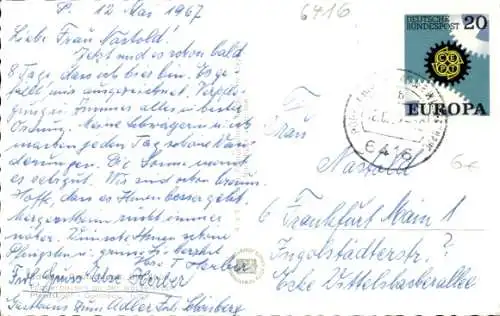 P. 12 Mai 1967
6416
Liebe Frau Nastold!
Jetzt sind es schon bald
8 Tage, dass ich hier bin. Es ge-
fällt mir ausgezeichnet. Verpfle-
gung u. Zimmer alles in bester
Ordnung. Meine Schwägerin u. ich
machen jeden Tag schöne Wan-
derungen. Die Sonne meint
es sehr gut. Wir sind schon braun.
Hoffe, dass es Ihnen besser geht.
nicht immer
später. Wünsche Ihnen schöne
Pfingsten u. grüsse Sie herzlichst
Herber
Frdl. Gruss Else Herber
Gasthaus zum Adler
DEUTSCHE
BUNDESPOST
20
CEPT
EUROPA
6416
Frau
Nastold
6 Frankfurt Main 1
Ingolstädterstr. ?
Ecke Wittelsbacherallee
6e